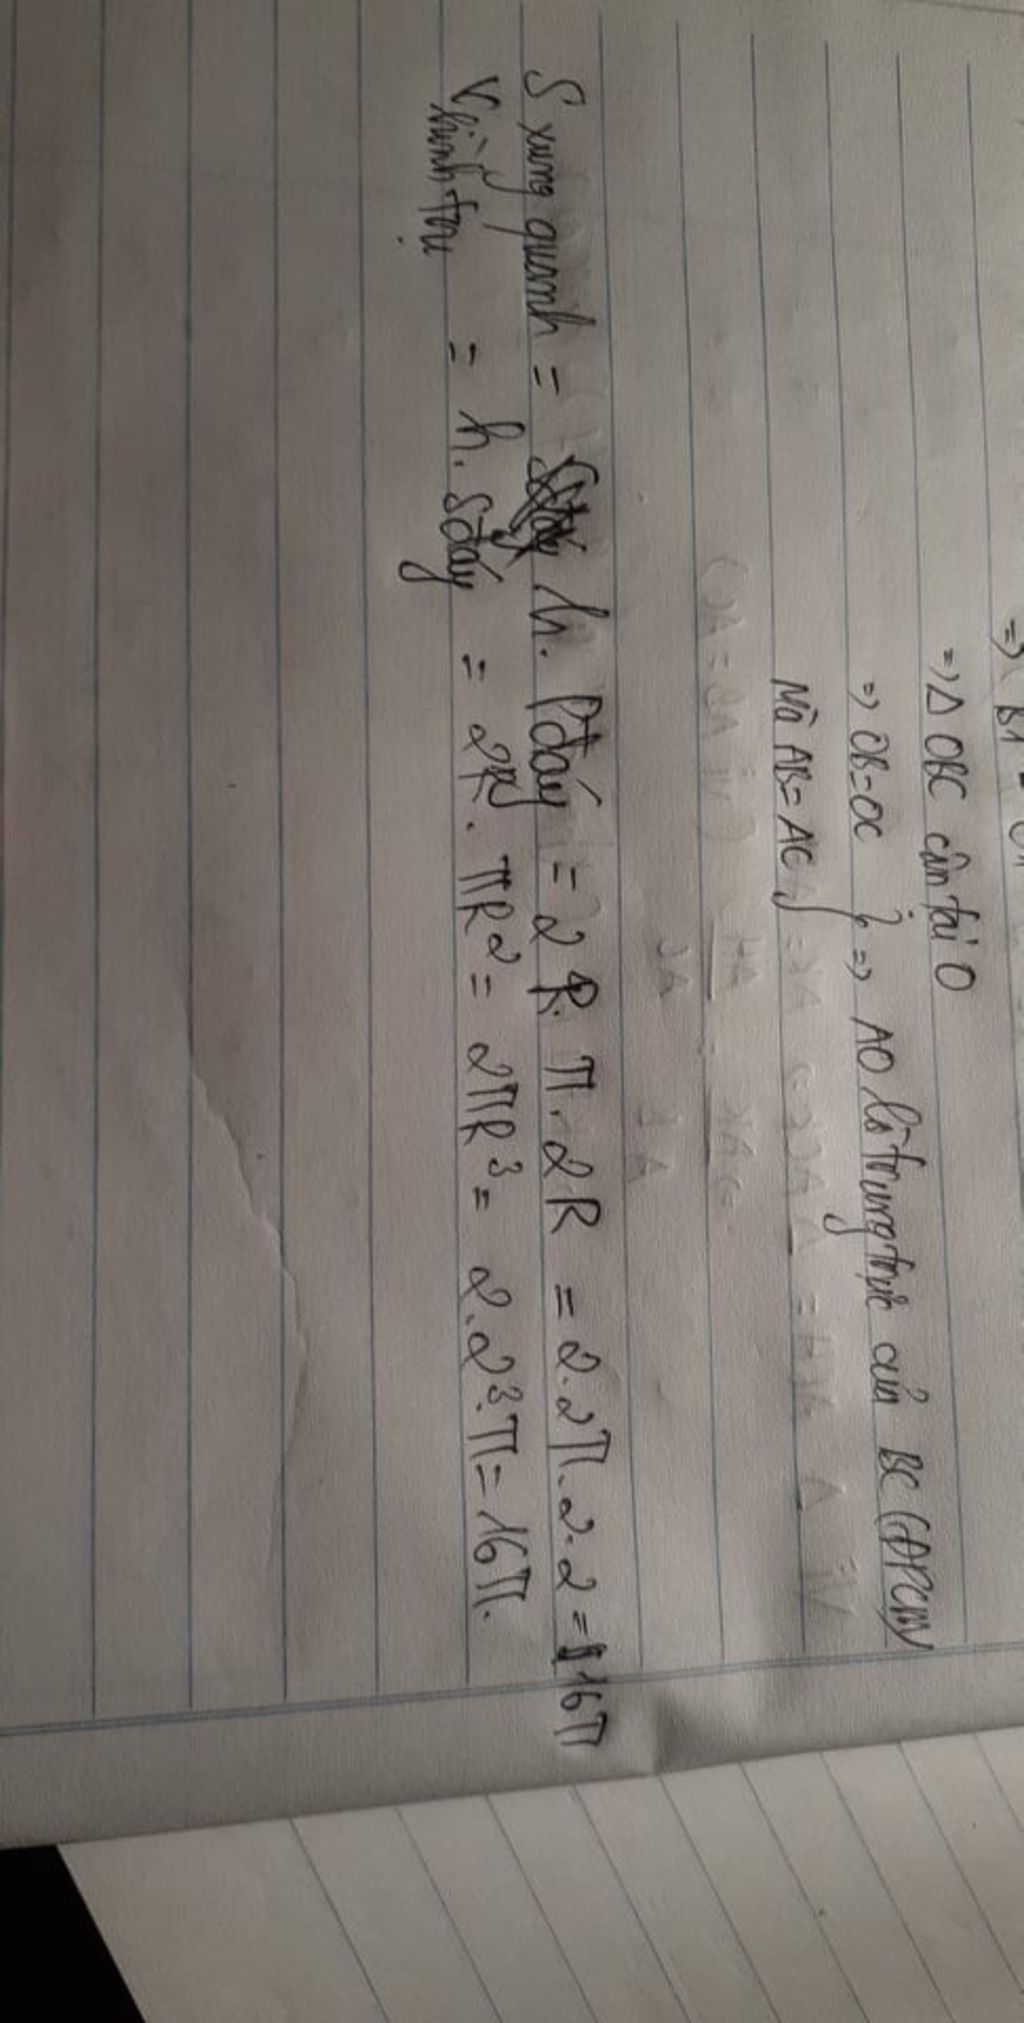 => ΔOBC cân tại O
=> OB=OC } => AO là trung trực của BC (ĐPCM)
Mà AB=AC }
S xung quanh = h. Pđáy = 2R. π. 2R = 2.2π.2.2 = 16π
V hình trụ = h. Sđáy = 2R. πR² = 2πR³ = 2.2³.π = 16π.